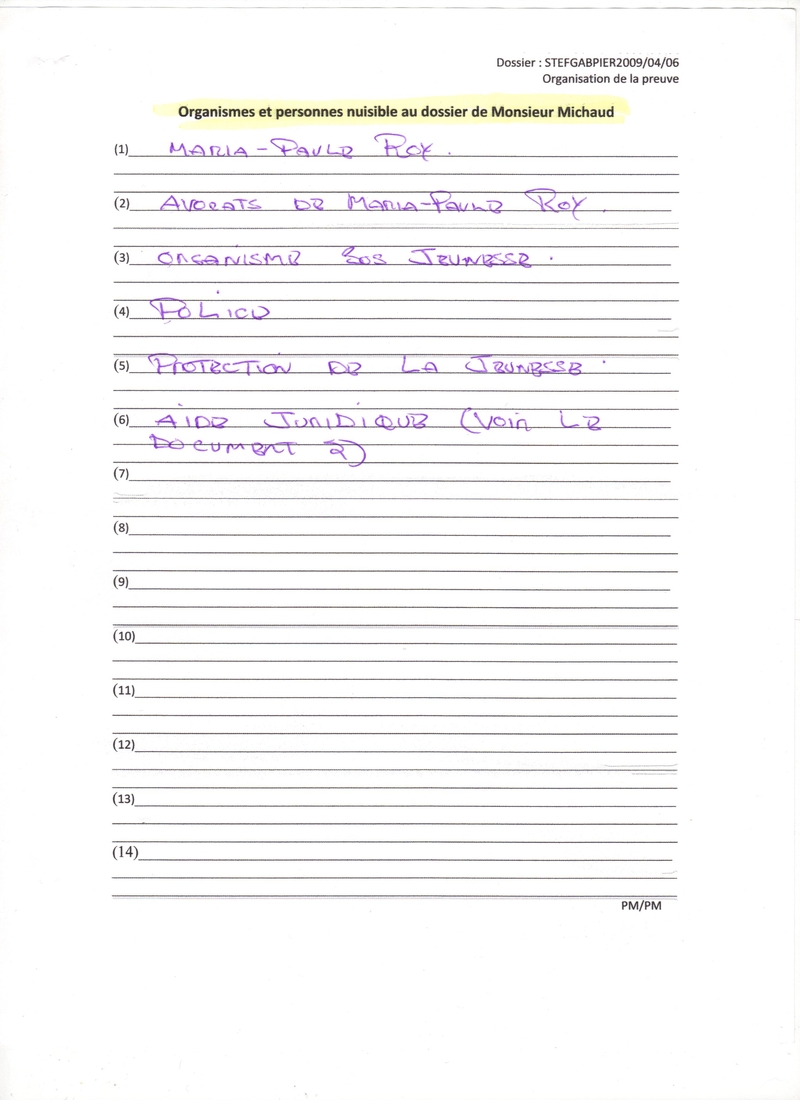 Dossier : STEFGABPIER2009/04/06
Organisation de la preuve
Organismes et personnes nuisible au dossier de Monsieur Michaud
(1) MARIA-PAULE ROY.
(2) AVOCATS DE MARIA-PAULE ROY.
(3) ORGANISME SOS JEUNESSE.
(4) POLICE
(5) PROTECTION DE LA JEUNESSE.
(6) AIDE JURIDIQUE (VOIR LE
DOCUMENT 2)
(7)
(8)
(9)
(10)
(11)
(12)
(13)
(14)
PM/PM